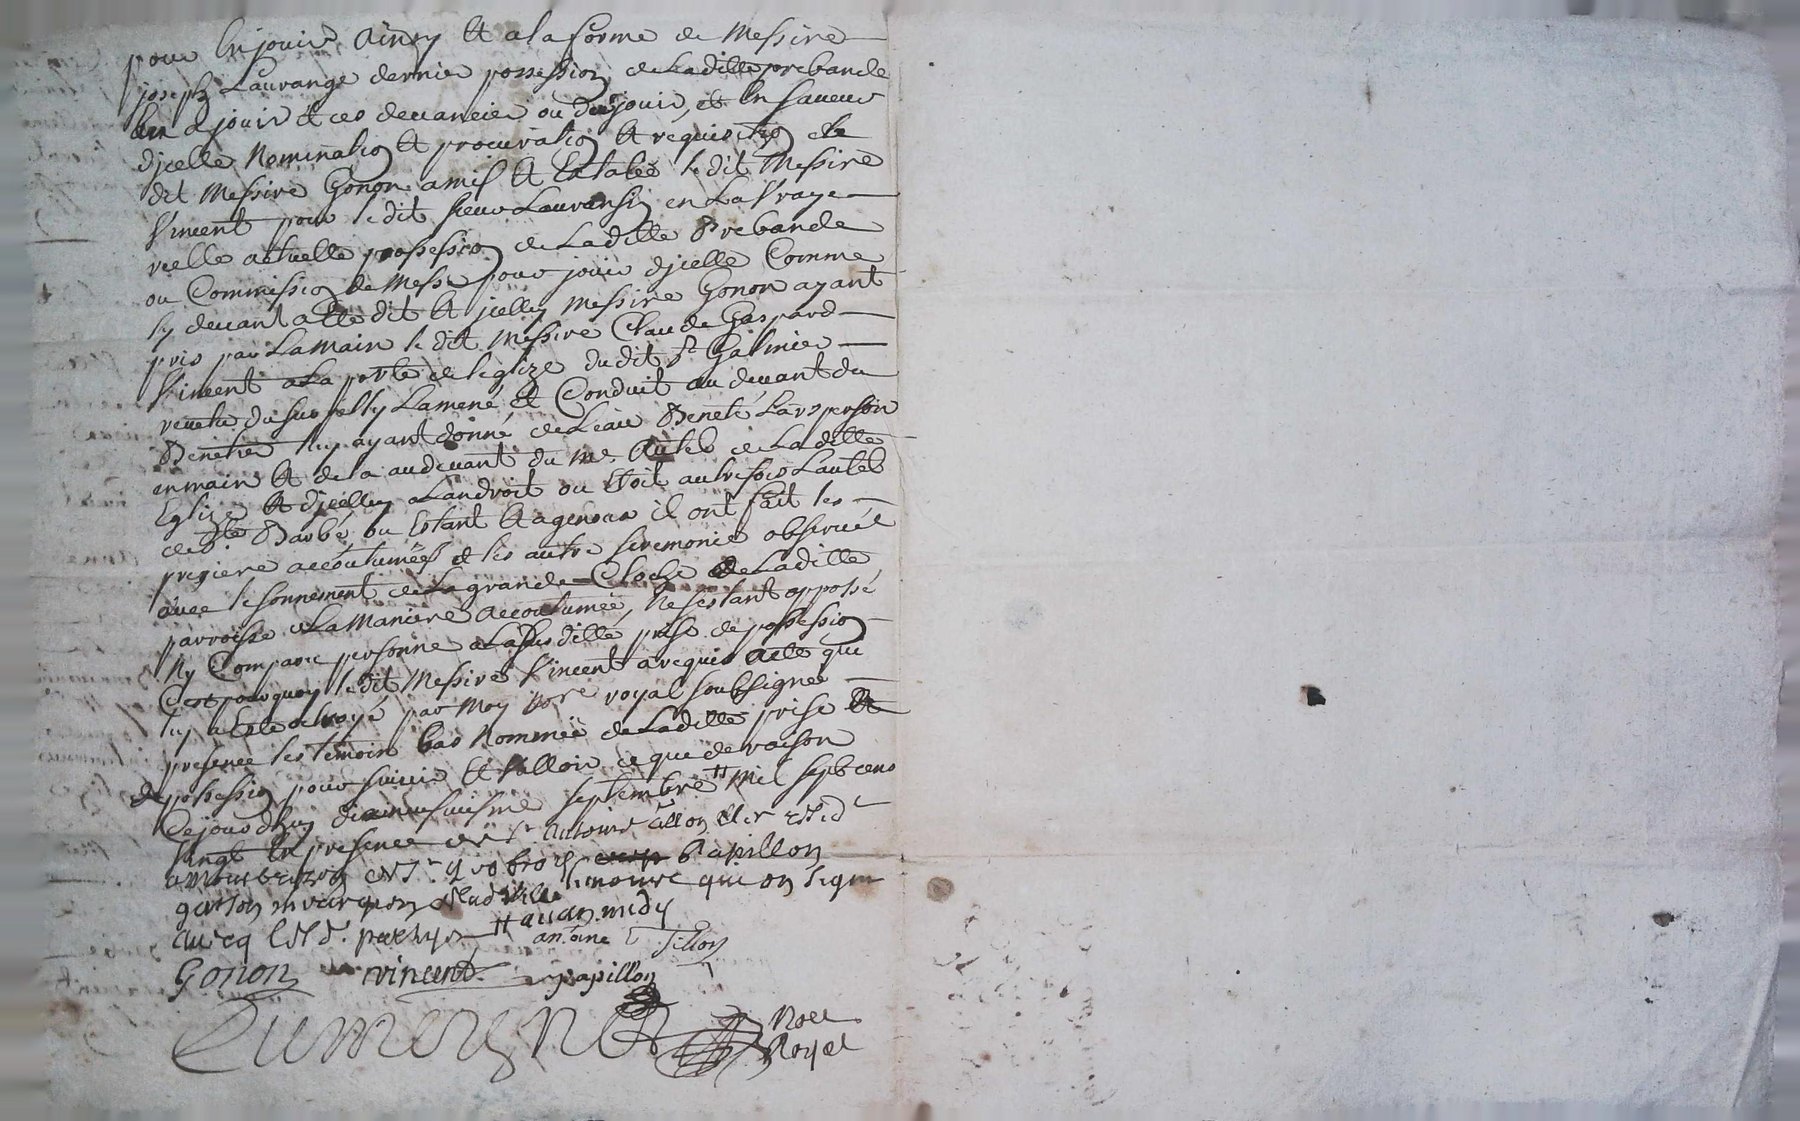 pour En jouir Ainsy et a la forme de Messire
joseph Lauvange dernier possession de Laditte prebande
En a jouir et ces devancier ou du jouir, et En faveur
djcelle Nomination et procuration et requisition le
dit Messire Gonon amis et Estably le dit Messire
Vincent pour le dit sieur en La Vraye
reelle actuelle possession de Laditte Prebande
ou Commission de Messe pour jouir djcelle Comme
sy devant a Este dit et jcelluy Messire Gonon ayant
pris par La Main le dit Messire Claude Gaspard
Vincent a La porte de leglize du dit St Galmier
revetu du surpelly Lamené et Conduit au devant du
Benetier luy ayant donné de Leau Benete Lasperson
en main et de la au devant du me Autel de Laditte
Eglize et djcelluy a Landroit ou Etoit autrefois Lautel
de Ste Barbe ou Estant et agenoux il ont fait les
pregiere accoutumées et les autre seremonie observée
avec le sonnement de La grande Cloche de Laditte
parroisse a La Maniere accoutumée, Ne sestant opposé
Ny Comparu personne a La susditte prise de possession
Cest pourquoy le dit Messire Vincent a requis acte que
luy a Esté octroyé par Moy nore royal soubsignée
presence les temoin bas Nommée de Laditte prise
de possession pour suivir et Valloir ce que de raison
Cejourdhuy septembre # Mil sept cens
Vingt En presence de Sr antoine tillon Clerc resid
a Montbrizon et Sr papillon
garson de Ladt Ville qui on signe
avecq Lesd. partyes # avan midy
antoine Tillon
Gonon vincent papillon
Dumoignet Nore
Royal